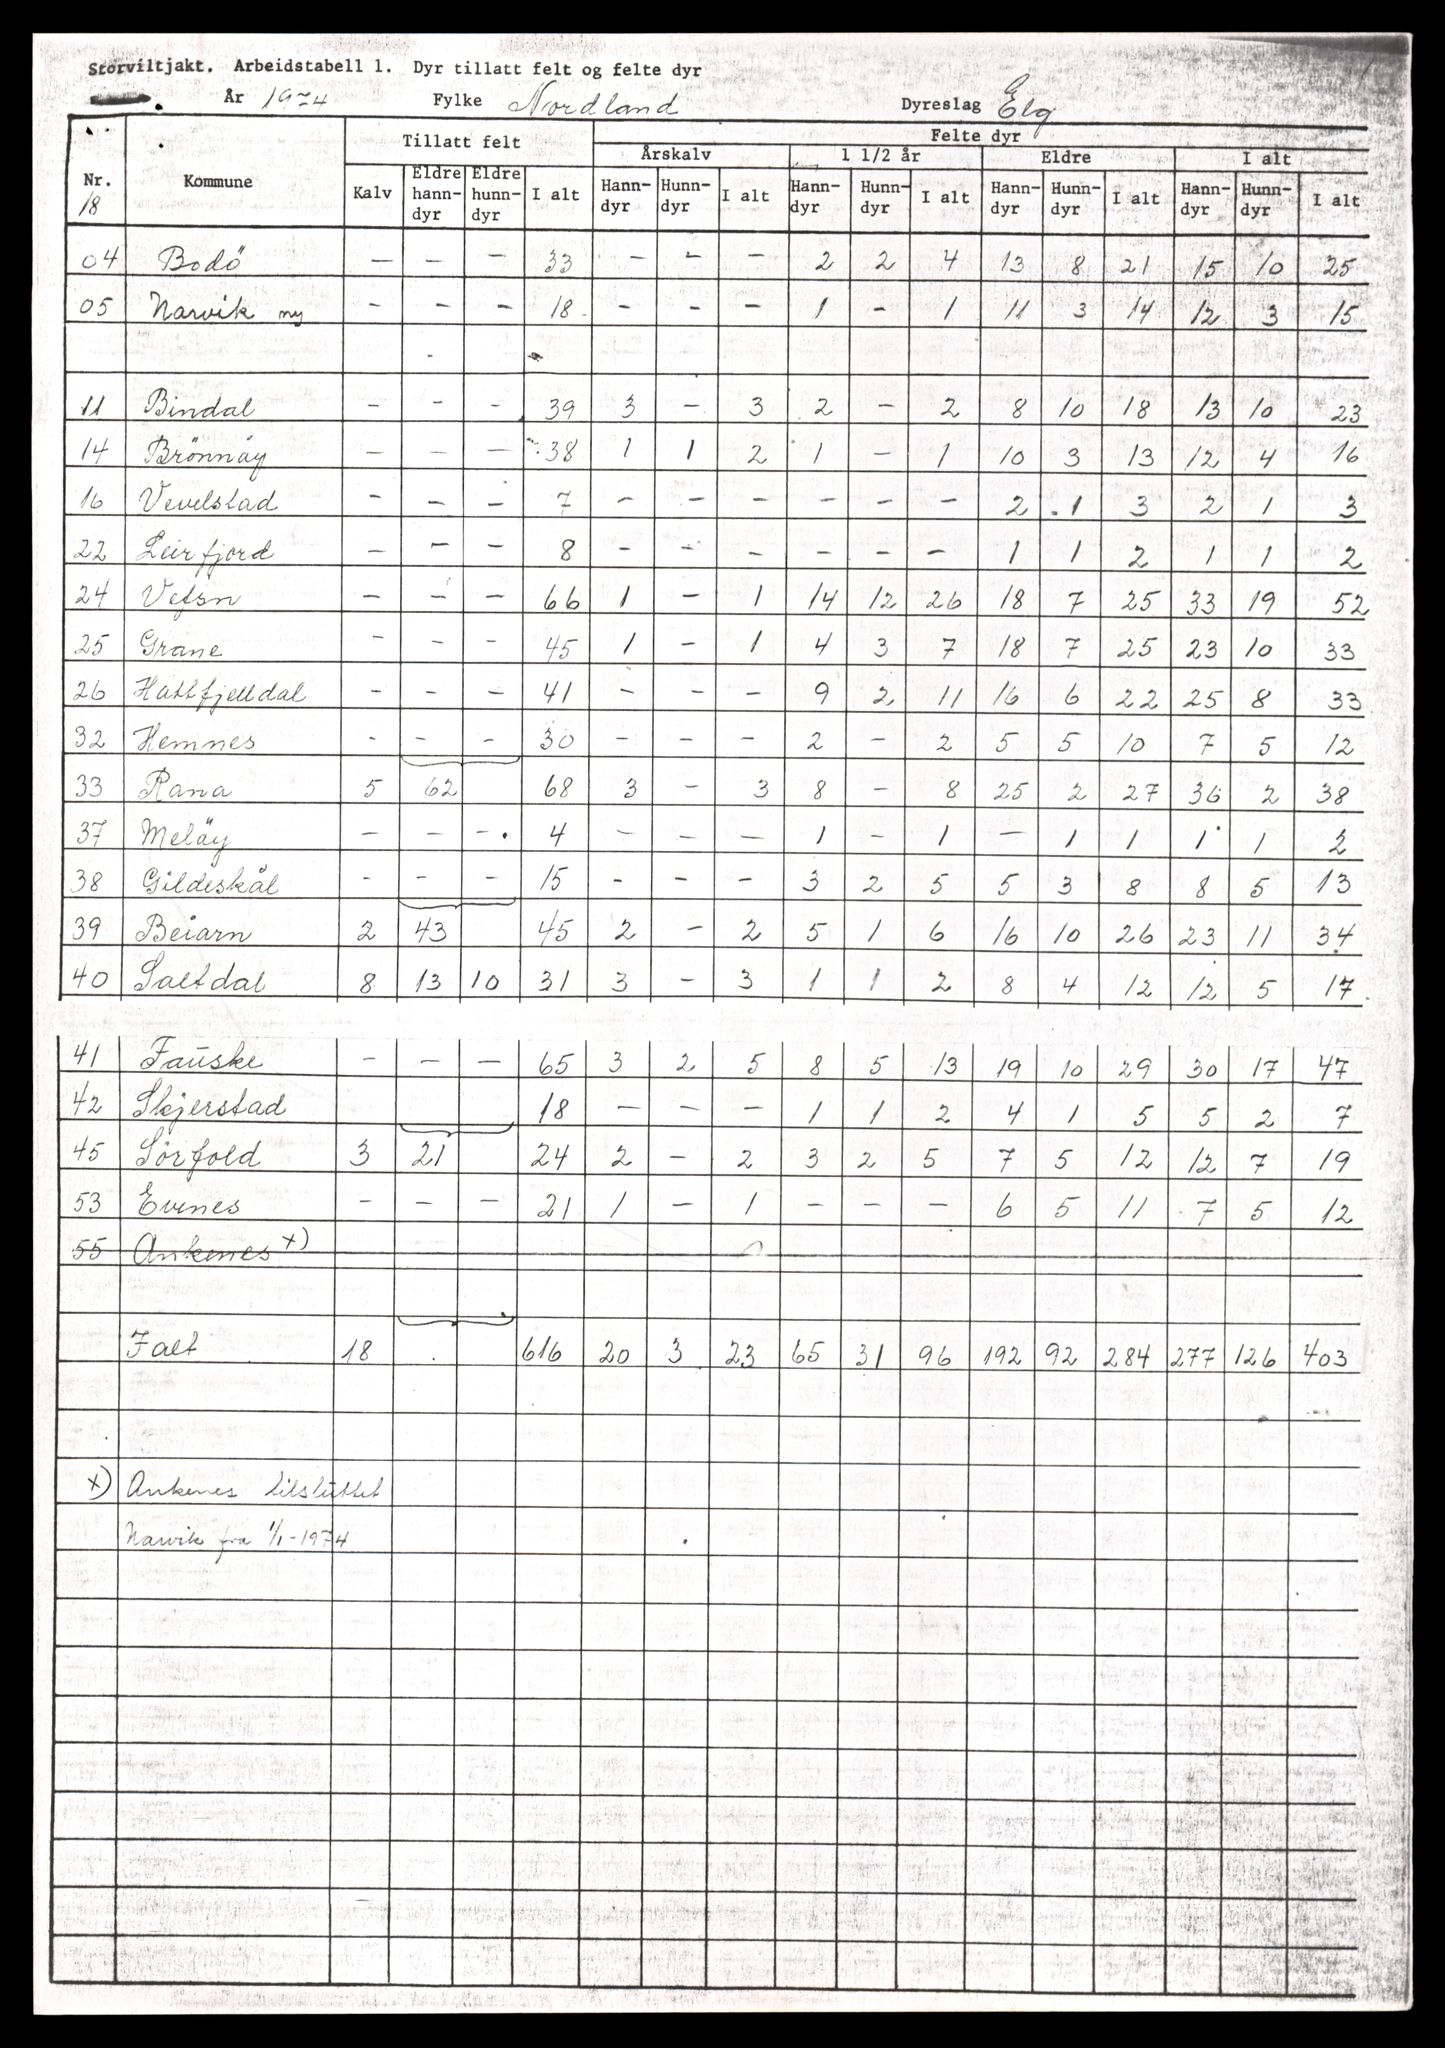 Storviltjakt. Arbeidstabell 1. Dyr tillatt felt og felte dyr
År 1974 Fylke Nordland Dyreslag Elg
Nr. 18 Kommune Tillatt felt Felte dyr
Årskalv 1 1/2 år Eldre I alt
Kalv Eldre hann-dyr Eldre hunn-dyr I alt Hann-dyr Hunn-dyr I alt Hann-dyr Hunn-dyr I alt Hann-dyr Hunn-dyr I alt Hann-dyr Hunn-dyr I alt
04 Bodö - - - 33 - - - 2 2 4 13 8 21 15 10 25
05 Narvik ny - - - 18 - - - 1 - 1 11 3 14 12 3 15
11 Bindal - - - 39 3 - 3 2 - 2 8 10 18 13 10 23
14 Brönnöy - - - 38 1 1 2 1 - 1 10 3 13 12 4 16
16 Vevelstad - - - 7 - - - - - - 2 1 3 2 1 3
22 Leirfjord - - - 8 - - - - - - 1 1 2 1 1 2
24 Vefsn - - - 66 1 - 1 14 12 26 18 7 25 33 19 52
25 Grane - - - 45 1 - 1 4 3 7 18 7 25 23 10 33
26 Hattfjelldal - - - 41 - - - 9 2 11 16 6 22 25 8 33
32 Hemnes - - - 30 - - - 2 - 2 5 5 10 7 5 12
33 Rana 5 62 68 3 - 3 8 - 8 25 2 27 36 2 38
37 Melöy - - - 4 - - - 1 - 1 - 1 1 1 1 2
38 Gildeskål - - - 15 - - - 3 2 5 5 3 8 8 5 13
39 Beiarn 2 43 45 2 - 2 5 1 6 16 10 26 23 11 34
40 Saltdal 8 13 10 31 3 - 3 1 1 2 8 4 12 12 5 17
41 Fauske - - - 65 3 2 5 8 5 13 19 10 29 30 17 47
42 Skjerstad 18 - - - 1 1 2 4 1 5 5 2 7
45 Sörfold 3 21 24 2 - 2 3 2 5 7 5 12 12 7 19
53 Evenes - - - 21 1 - 1 - - - 6 5 11 7 5 12
55 Ankenes x)
Ialt 18 616 20 3 23 65 31 96 192 92 284 277 126 403
x) Ankenes tilsluttet
Narvik fra 1/1-1974